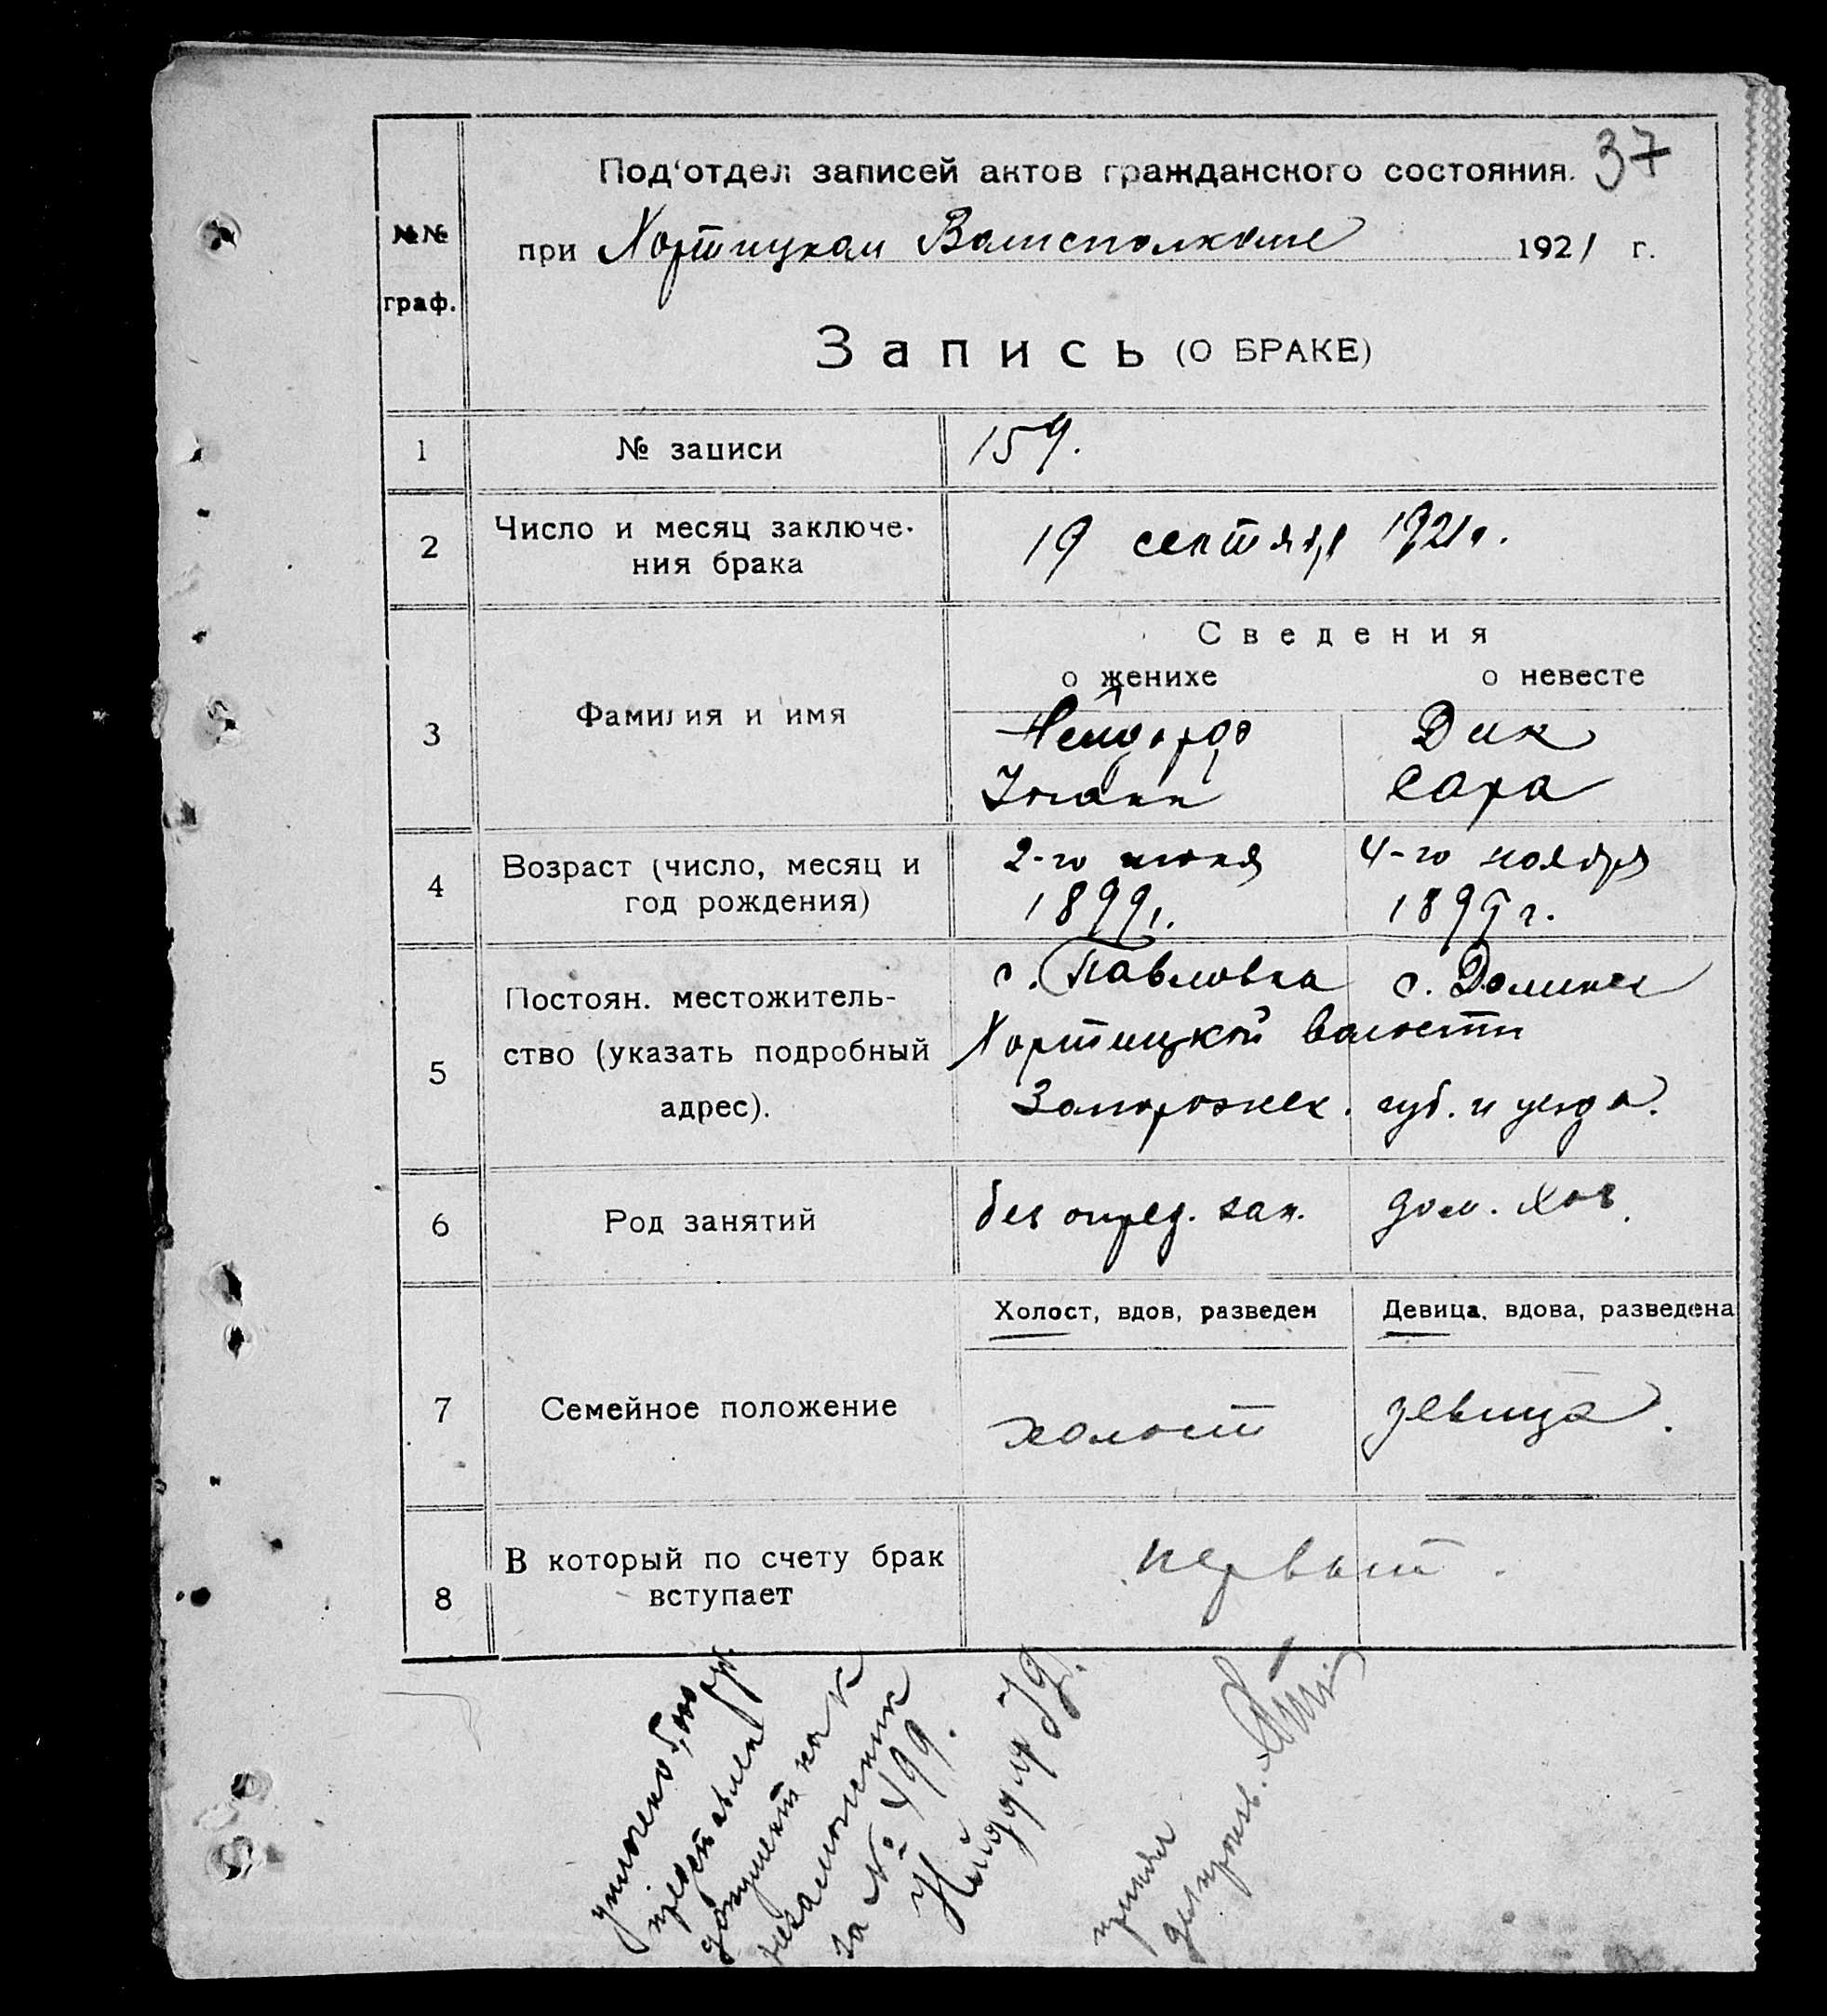 37
Под'отдел записей актов гражданского состояния.
№№
граф.
при Хортицком Волисполкоме 1921 г.
Запись (О БРАКЕ)
1 № записи 159.
2 Число и месяц заключе-
ния брака
19 сентября 1921 г.
Сведения
о женихе о невесте
3 Фамилия и имя
Дик
Иоганн Сара
4 Возраст (число, месяц и
год рождения)
2-го июня 4-го ноября
1899 г. 189 г.
5 Постоян. местожитель-
ство (указать подробный
адрес).
с. Павловка с. Долинск
Хортицкой волости
Запорожск. губ. и уезда.
6 Род занятий
без опред. зан. дом. хоз.
Холост, вдов, разведен Девица, вдова, разведена
7 Семейное положение
холост девица.
8 В который по счету брак
вступает
первый.
уплочено
представлен
документ как
незаможник
за № 499.
принял
делопроизв.